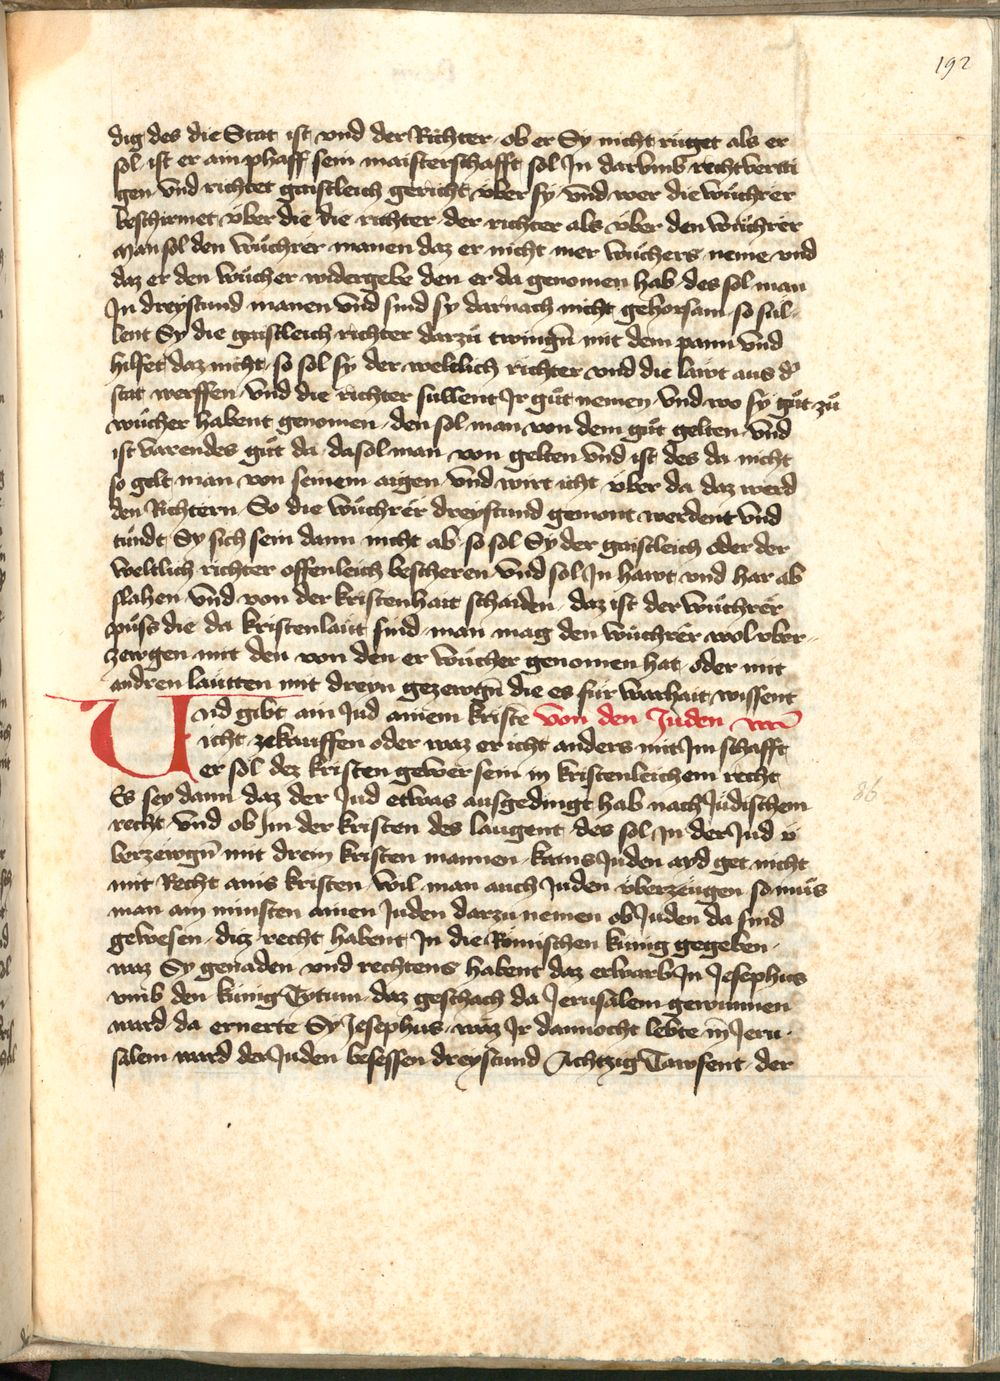 192
dig des die Stat ist vnd der Richter ob er Sy nicht rüget als er
sol ist er ain phaff sein maisterschafft sol In darvmb rechtverti
gen vnd richtet gaistleich gericht über sy vnd wer die wůchrer
beschirmet über die die richter der richter als über den wůchrer
Man sol den wůchrer manen daz er nicht mer wůchers neme vnd
daz er den wůcher widergebe den er da genomen hab des sol man
In dreystund manen vnd sind sy darnach nicht gehorsam so sul-
lent Sy die gaistleich richter darzů twingn̄ mit dem pann vnd
hilfet daz nicht so sol sy der weltlich richter vnd die läwt aus d'
stat werffen vnd die richter sullent Ir gůt nemen vnd wo sy gůt zů
wůcher habent genomen den sol man von dem gůt gelten vnd
ist varendes gůt da da sol man von gelten vnd ist des da nicht
so gelt man von seinem aigen vnd wirt icht über da daz werd
den Richtern So die wůchrer dreystund gemont werdent vnd
tůndt Sy sich sein dann nicht ab so sol Sy der gaistleich oder der
weltlich richter offenleich bescheren vnd sol In hawt vnd har ab
slahen vnd von der kristenhait schaiden daz ist der wůchrer
půss die da kristenläut sind man mag den wůchrer wol vber-
zewgen mit den von den er wůcher genomen hat oder mit
andren läutten mit dreyn gezewgn̄ die es für warhait wissent
Vnd gibt ain Jud ainem kristē von den Juden
icht zekauffen oder waz er icht anders mit Im schafft
er sol dez kristen gewer sein in kristenleichem recht
Es sey dann daz der Jud etwas ausgedingt hab nach Jüdischem
recht vnd ob Im der kristen des laugent des sol In der Jud ü
berzewgn̄ mit drein kristen mannen kains Juden ayd get nicht
mit Recht ains kristen wil man auch Juden überzeugen so můs
man ain minsten ainen Juden darzu nemen ob Juden da sind
gewesen diz recht habent In die Römischen künig gegeben
waz Sy genaden vnd rechtens habent daz erwarb In Josephus
vmb den künig Tytum daz geschach da Jerusalem gewunnen
ward da ernerte Sy Josephus waz Ir dannocht lebte in Jeru-
salem ward der Juden besessen dreystund Achtzig Tawsent der